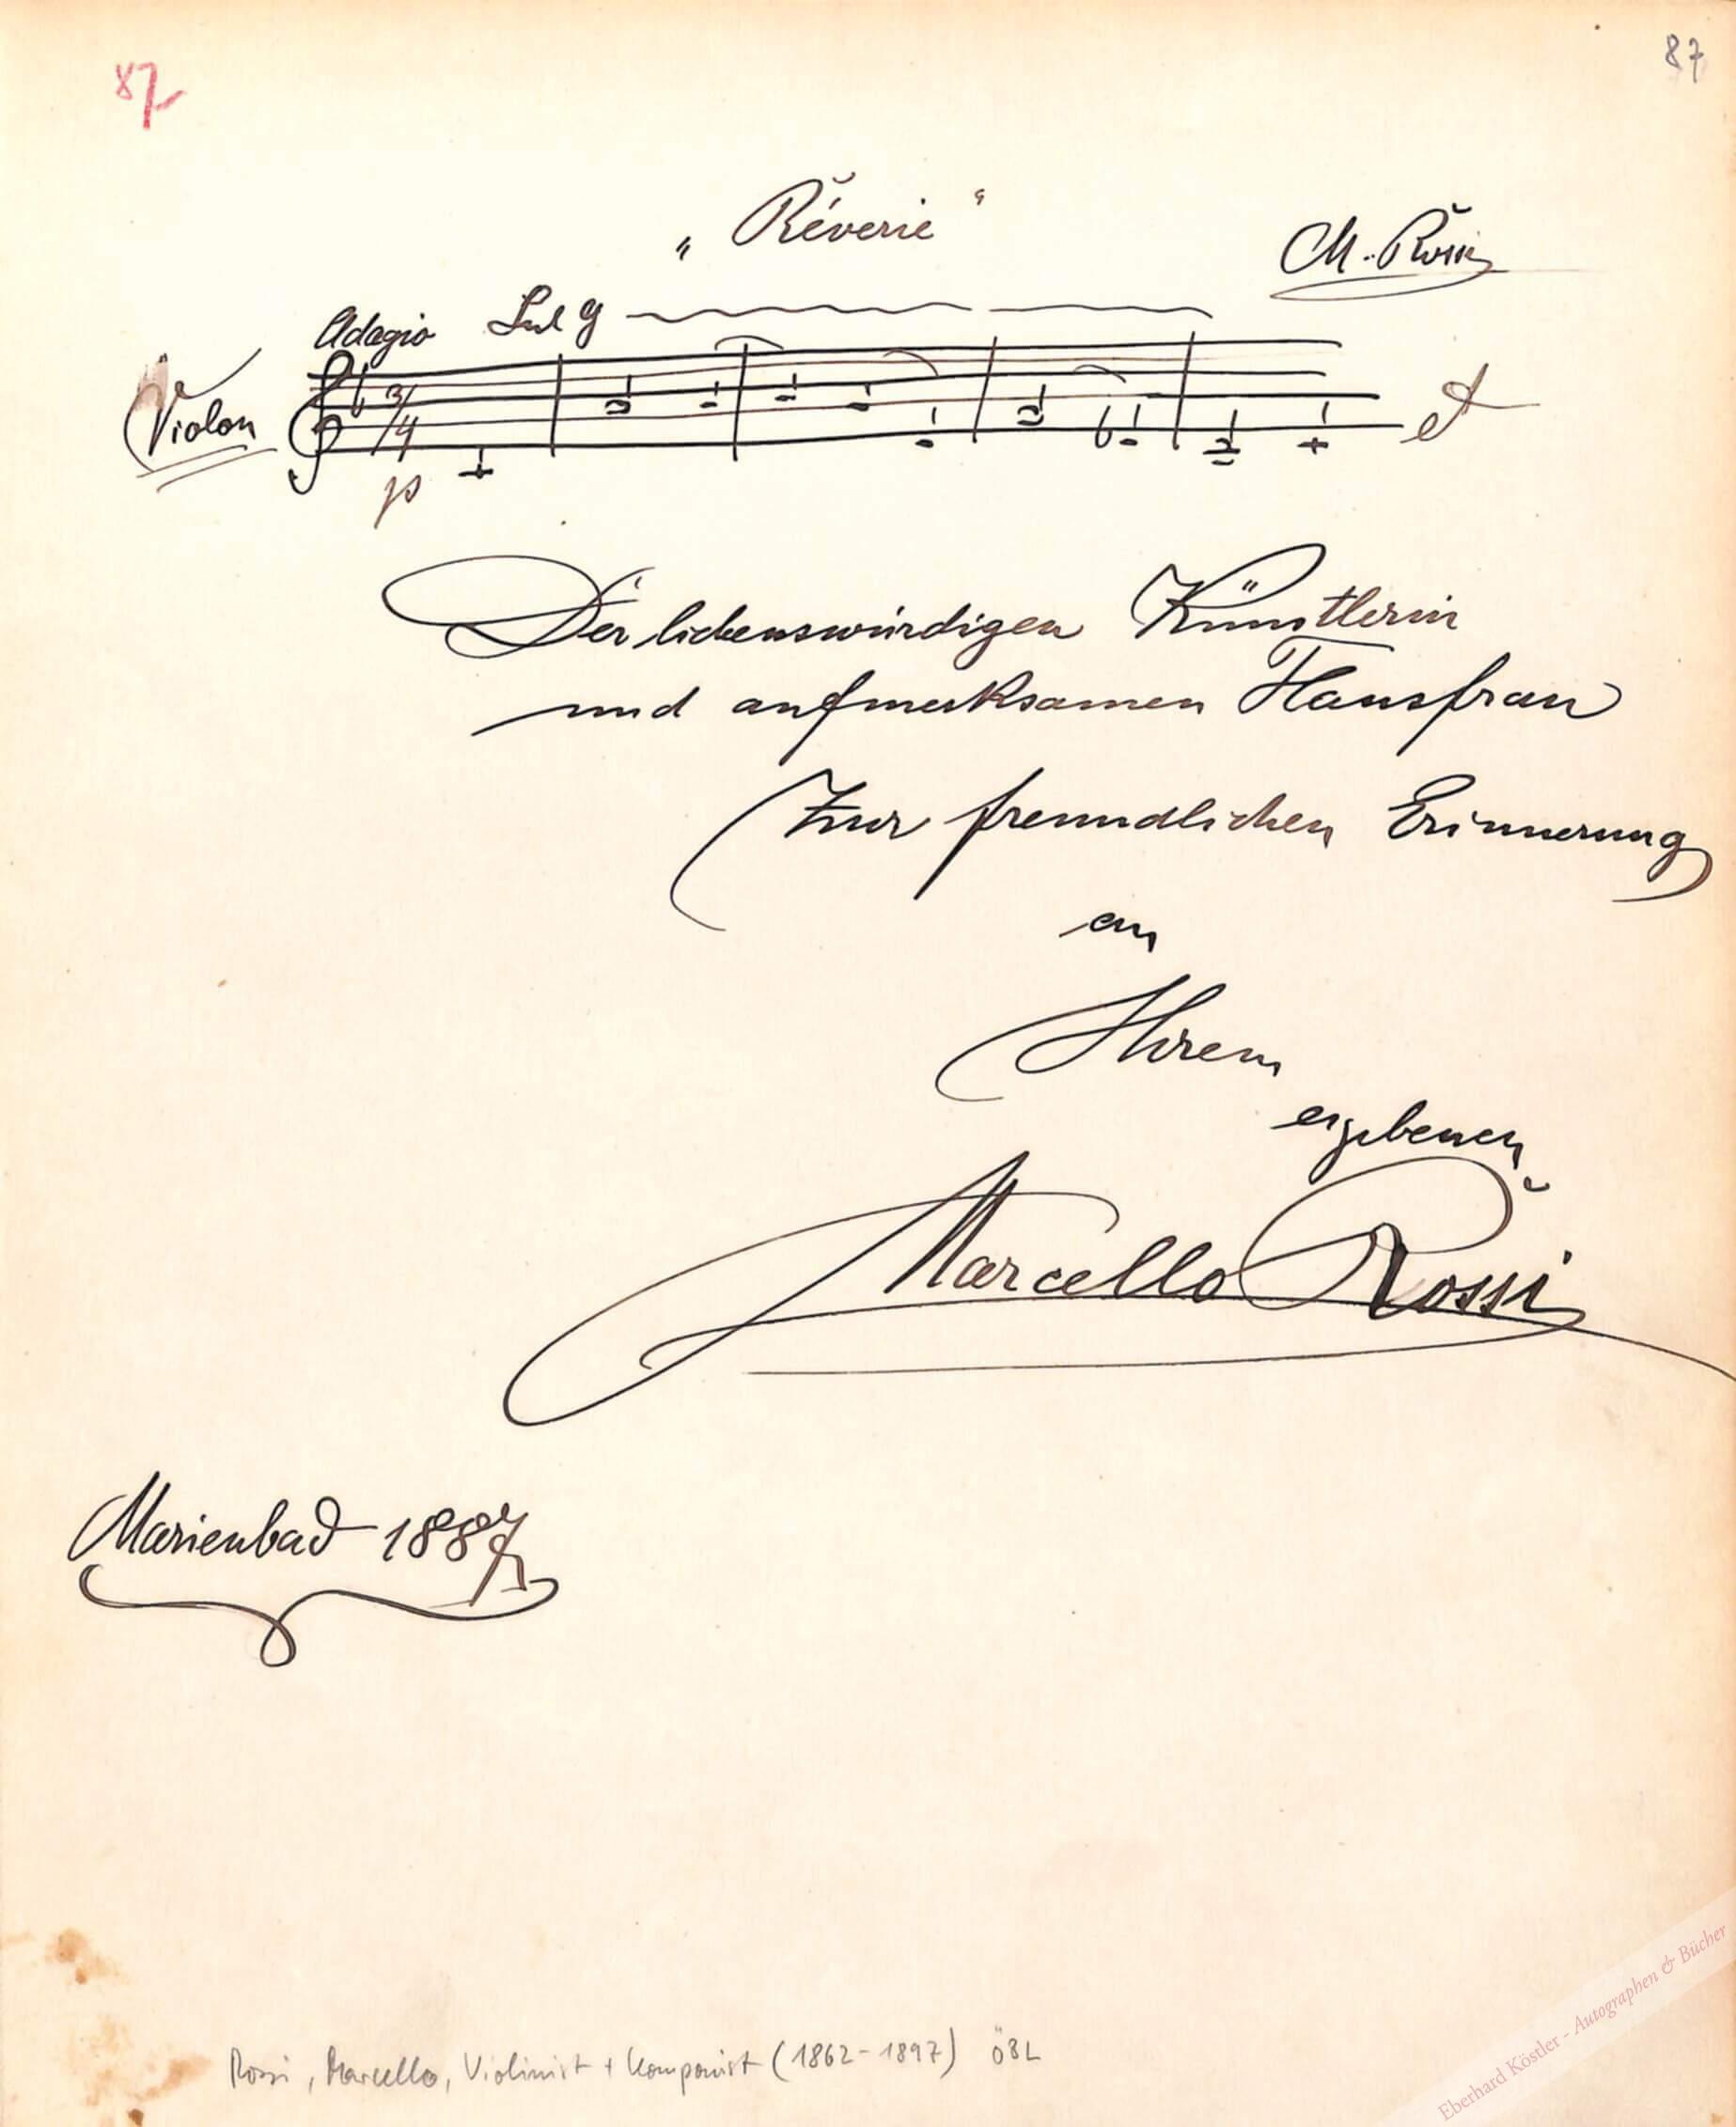 87
87
„Rêverie“
M. Rossi
Adagio Sul G
Violon
3/4
p
Der liebenswürdigen Künstlerin
und aufmerksamen Hausfrau
Zur freundlichen Erinnerung
an
Ihrem
ergebenen
Marcello Rossi
Marienbad 1887
Rossi, Marcello, Violinist + Komponist (1862-1897) ÖBL
Eberhard Köstler - Autographen & Bücher